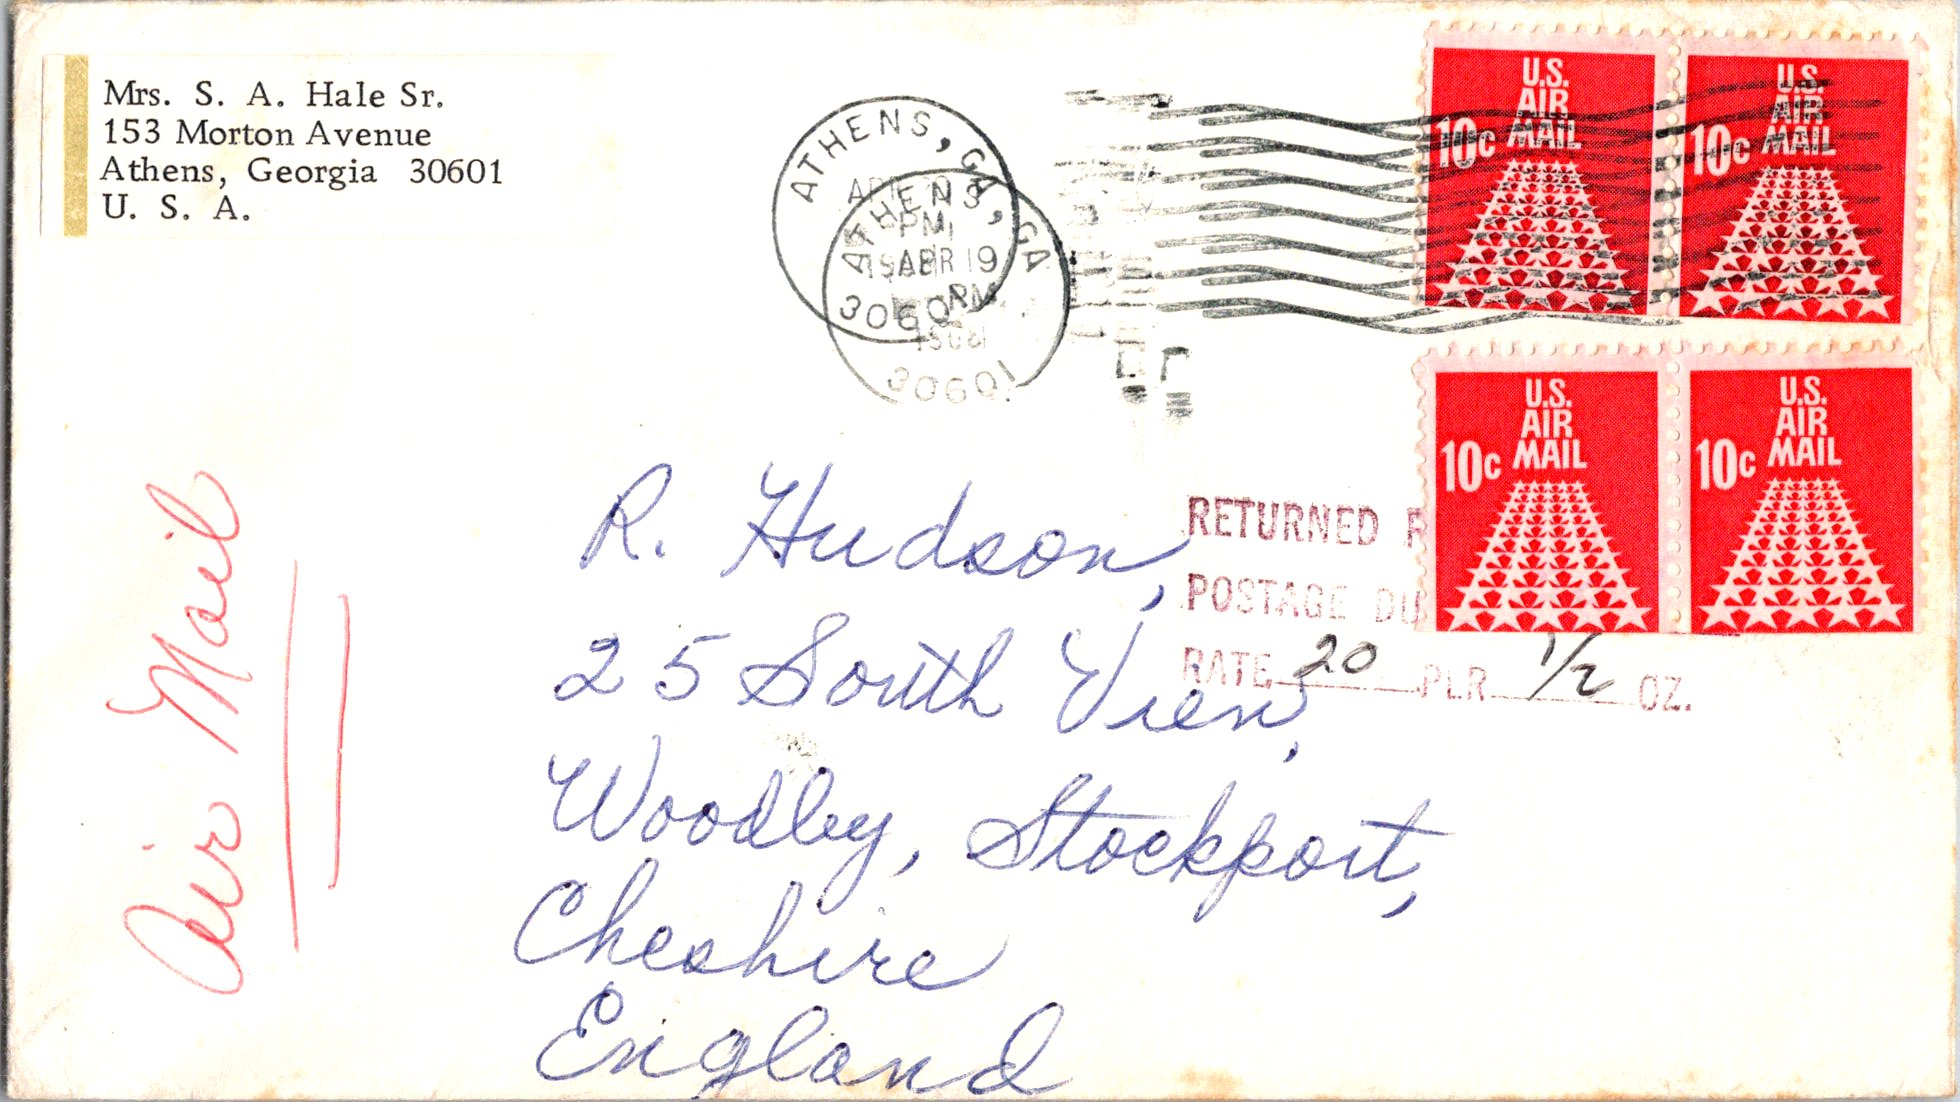 Mrs. S. A. Hale Sr.
153 Morton Avenue
Athens, Georgia 30601
U. S. A.
ATHENS, GA
PM
30601
ATHENS, GA
APR 19
PM
30601
U.S.
AIR
MAIL
10c
U.S.
AIR
MAIL
10c
U.S.
AIR
MAIL
10c
U.S.
AIR
MAIL
10c
Air Mail
RETURNED
POSTAGE DU
RATE 20 PER 1/2 OZ.
R. Hudson,
25 South View,
Woodley, Stockport,
Cheshire
England